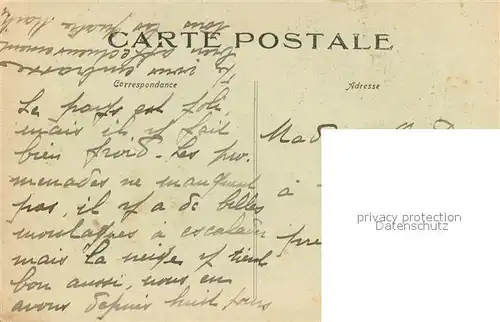 CARTE POSTALE
Correspondance
Adresse
Le pays est joli
mais il y fait
bien froid. Les pro
menades ne manquent
pas, il y a de belles
montagnes à escalader
mais la neige y tient
bon aussi, nous en
avons depuis huit jours
Je vous embrasse
bien affectueusement
tous les
Mad
à
pre
privacy protection
Datenschutz